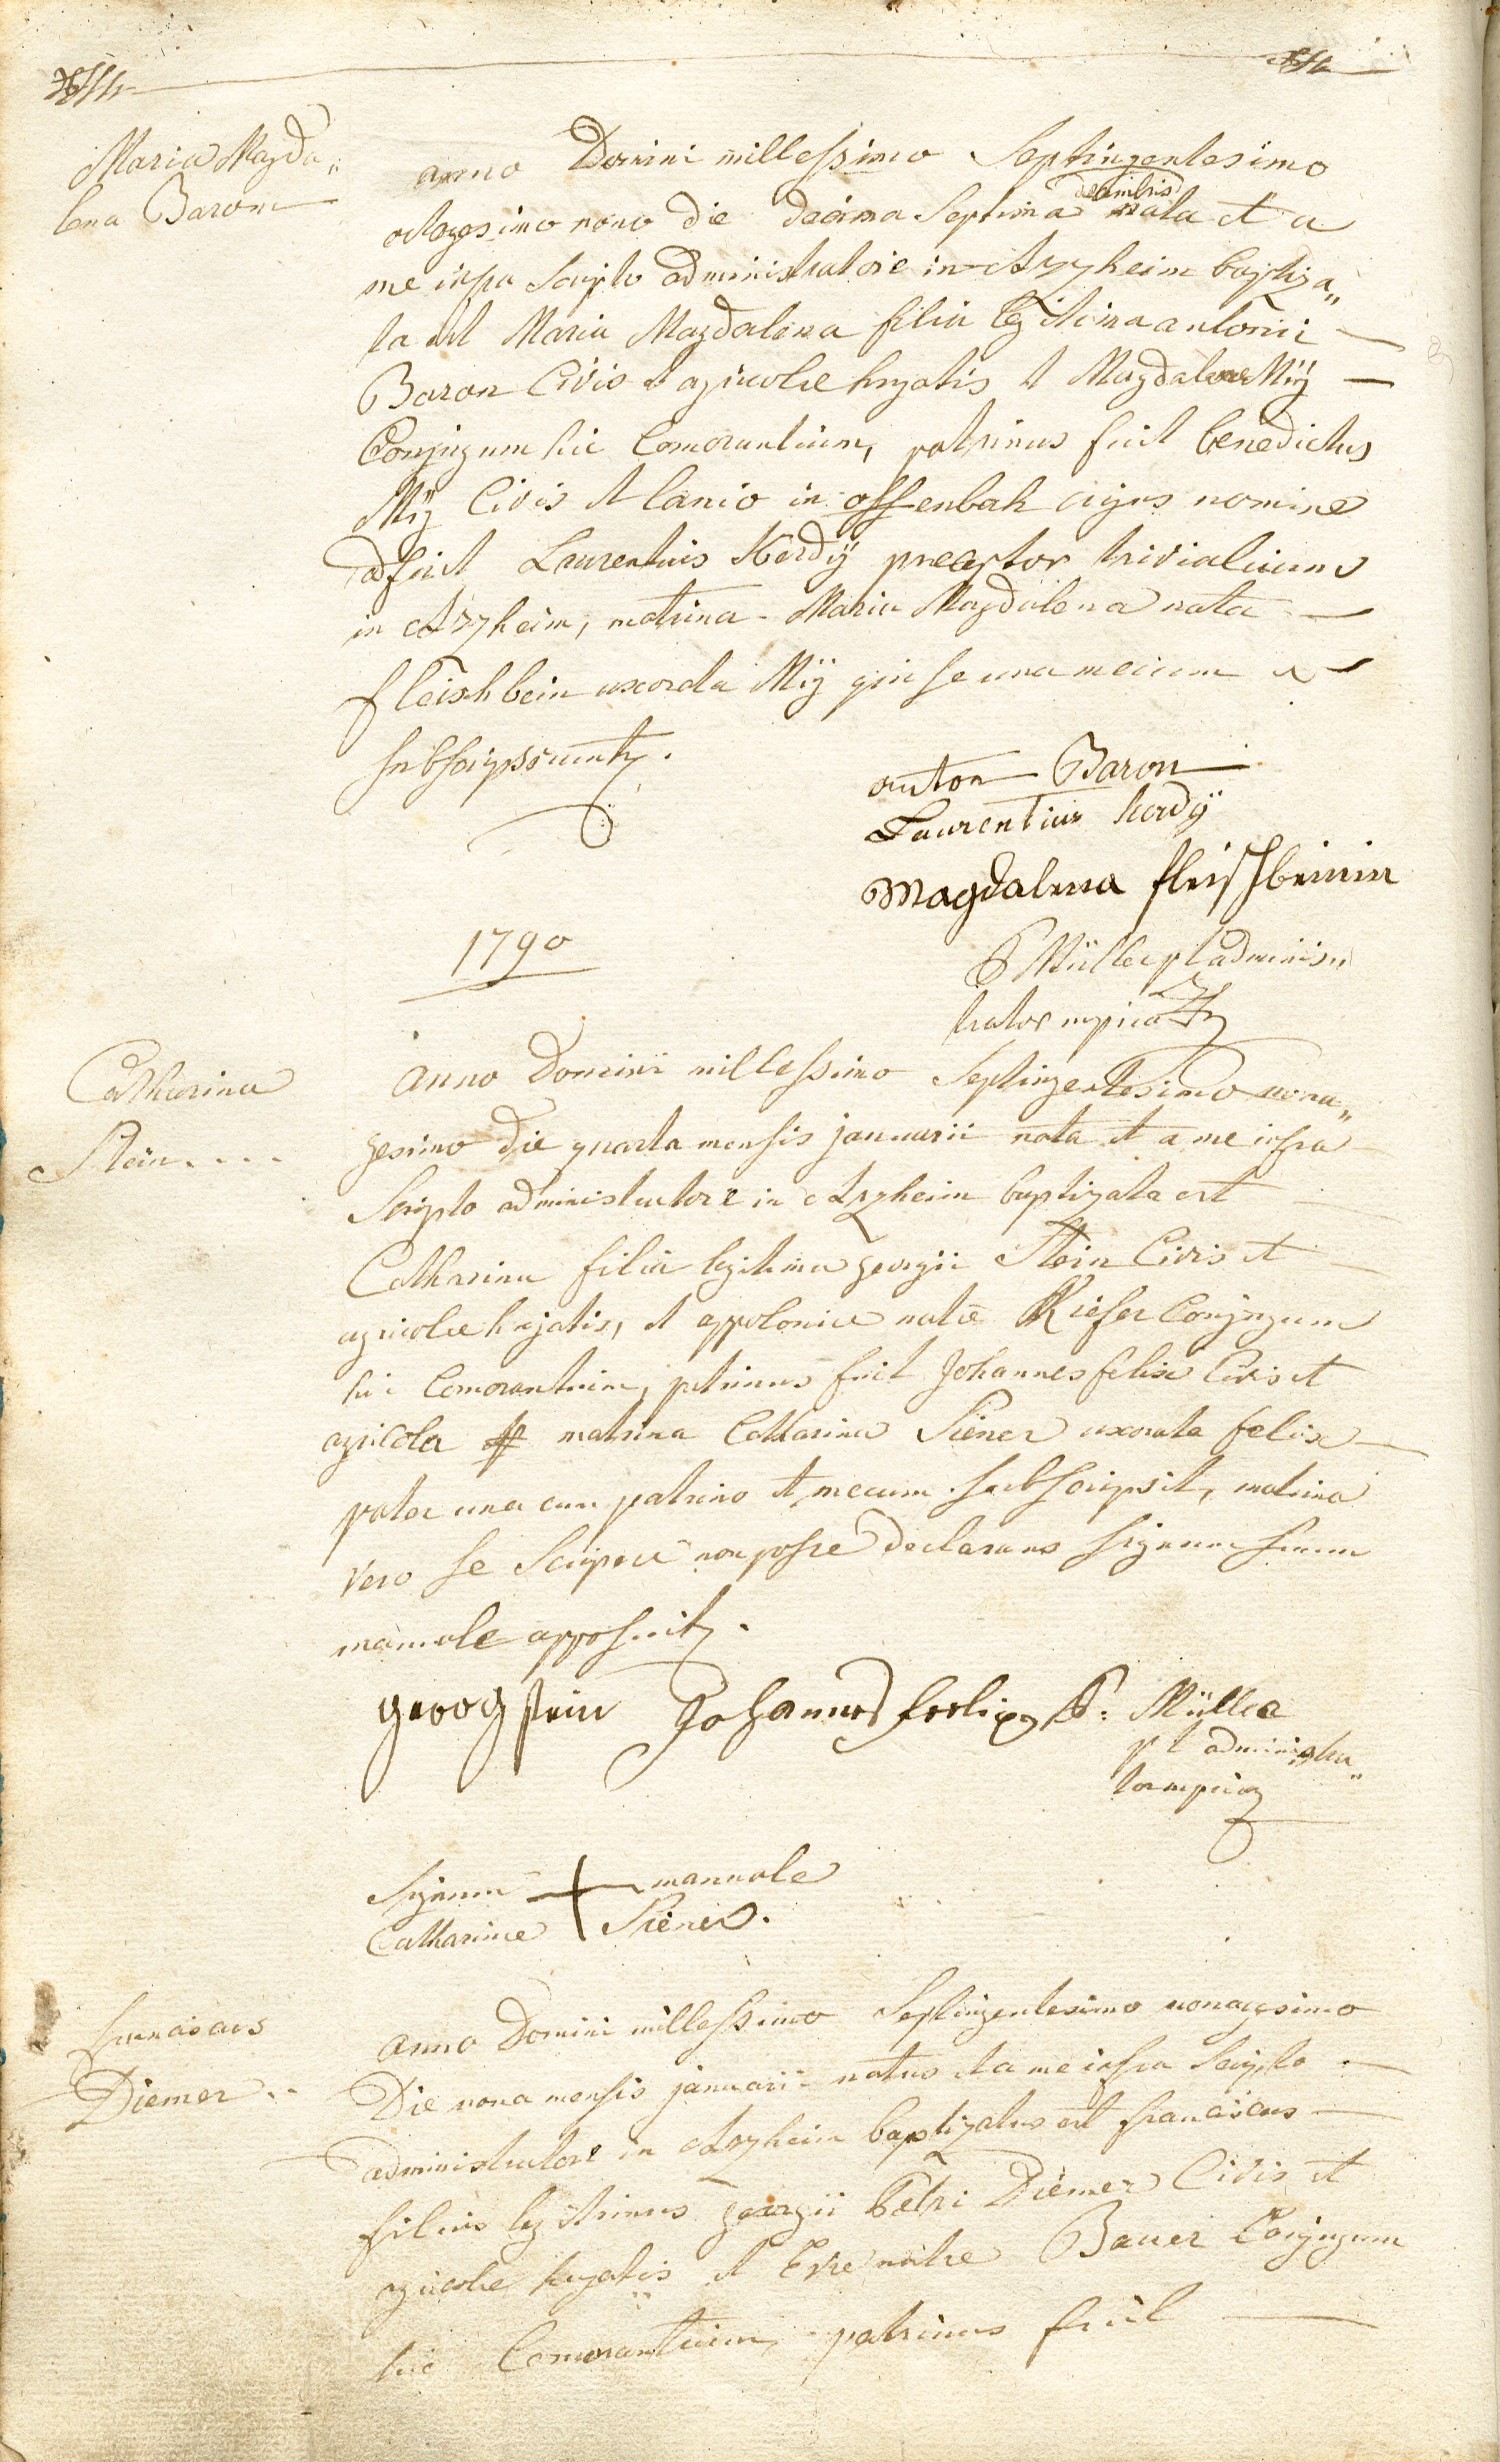 Maria Magda„
lena Baron
anno Domini millessimo Septingentesimo
octogesimo nono die decima Septima decembris nata et a
me infra Scripto administratore in Arzheim baptiza„
ta est Maria Magdalena filia legitima antonii
Baron Civis et agricolae hujatis et Magdalenae Mÿ
Conjugum hic Comorantium, patrinus fuit benedictus
Mÿ Civis et lanio in offenbak cujus nomine
adfuit Laurentius Herdÿ praeceptor trivialium
in Arzheim, matrina Maria Magdalena nata
fleischbein uxorata Mÿ qui se una mecum
subscripserunt.
anton Baron
Laurentius herdÿ
Magdalena fleischbeinin
P Müller pt adminis„
trator mpria
1790
Catharina
Stein....
anno Domini millessimo Septingentesimo nona„
gesimo die quarta mensis januarii nata et a me infra
Scripto administratore in Arzheim baptizata est
Catharina filia legitima georgii Stein Civis et
agricolae hujatis, et appoloniae natae Kiefer Conjugum
hic Comorantium, patrinus fuit Johannes felix Civis et
agricola matrina Catharina Siener uxorata felix
pater una cum patrino et mecum subscripsit, matrina
vero se Scribere non posse declarans signum suum
manuale apposuit.
georg stein Johannes feelix P: Müller
pt administra„
tor mpria
Signum + manuale
Catharinae Siener.
franciscus
Diemer..
anno Domini millessimo Septingentesimo nonagesimo
Die nona mensis januarii natus et a me infra Scripto
administratore in Arzheim baptizatus est franciscus
filius legitimus georgii Petri Diemer Civis et
agricolae hujatis et Evae natae Bauer Conjugum
hic Comorantium, patrinus fuit